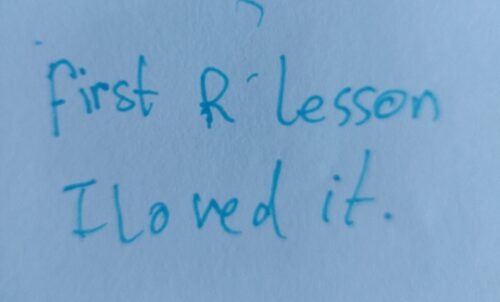 first R lesson
I loved it.